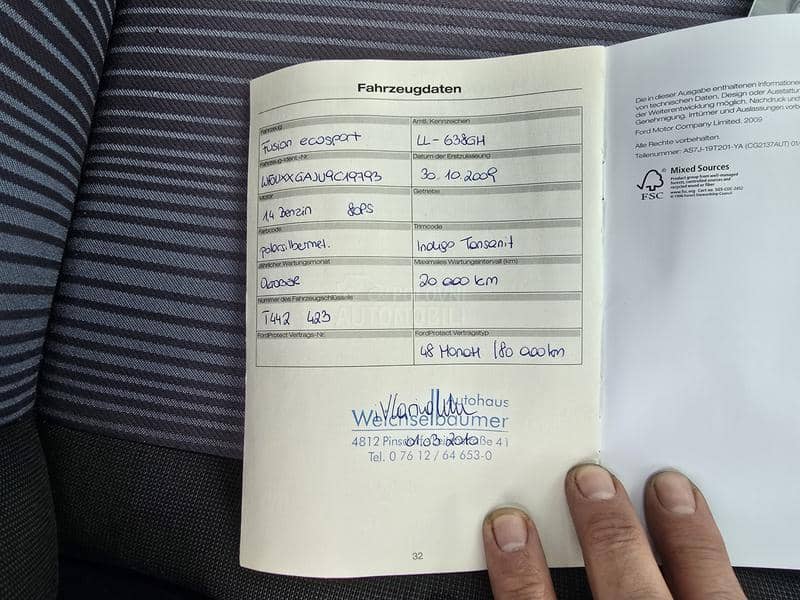 Fahrzeugdaten
Fahrzeug
Fusion ecosport
Amtl. Kennzeichen
LL-638GH
Fahrzeug-Ident.-Nr.
Datum der Erstzulassung
30.10.2009
Motor
1.4 Benzin 80PS
Getriebe
Farbcode
polarsilbermet.
Trimcode
Indigo Tansanit
Jährlicher Wartungsmonat
Oktober
Maximales Wartungsintervall (km)
20 000 km
Nummer des Fahrzeugschlüssels
T442 423
FordProtect Vertrags-Nr.
FordProtect Vertragstyp
48 Monat /80 000km
POLOVNI
AUTOMOBILI
Autohaus
Weichselbaumer
01.03.2010
4812 Pinsdorf, 41
Tel. 0 76 12 / 64 653-0
32
Die in dieser Ausgabe enthaltenen Informationen
von technischen Daten, Design oder Ausstattung
der Weiterentwicklung möglich. Nachdruck und
Genehmigung. Irrtümer und Auslassungen vorb
Ford Motor Company Limited. 2009
Alle Rechte vorbehalten.
Teilenummer: AS7J-19T201-YA (CG2137AUT) 01/
FSC
Mixed Sources
Product group from well-managed
forests, controlled sources and
recycled wood or fiber
www.fsc.org Cert no. SGS-COC-2452
© 1996 Forest Stewardship Council